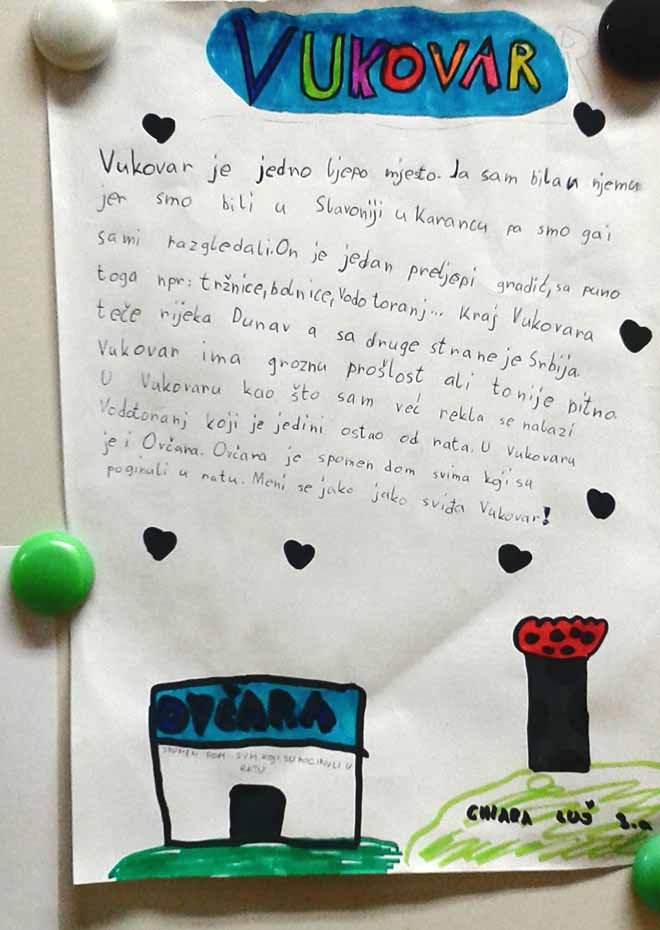 VUKOVAR
Vukovar je jedno ljepo mjesto. Ja sam bila u njemu
jer smo bili u Slavoniji u Karancu pa smo ga i
sami razgledali. On je jedan preljepi gradić, sa puno
toga npr: tržnice, bolnice, Vodotoranj... Kraj Vukovara
teče rijeka Dunav a sa druge strane je Srbija.
Vukovar ima groznu prošlost ali to nije bitno.
U Vukovaru kao što sam već rekla se nalazi
Vodotoranj koji je jedini ostao od rata. U Vukovaru
je i Ovčara. Ovčara je spomen dom svima koji su
poginuli u ratu. Meni se jako jako sviđa Vukovar!
OVČARA
SPOMEN DOM SVIM koji SU POGINULI U
RATU
CHIARA LUŠ 3.a